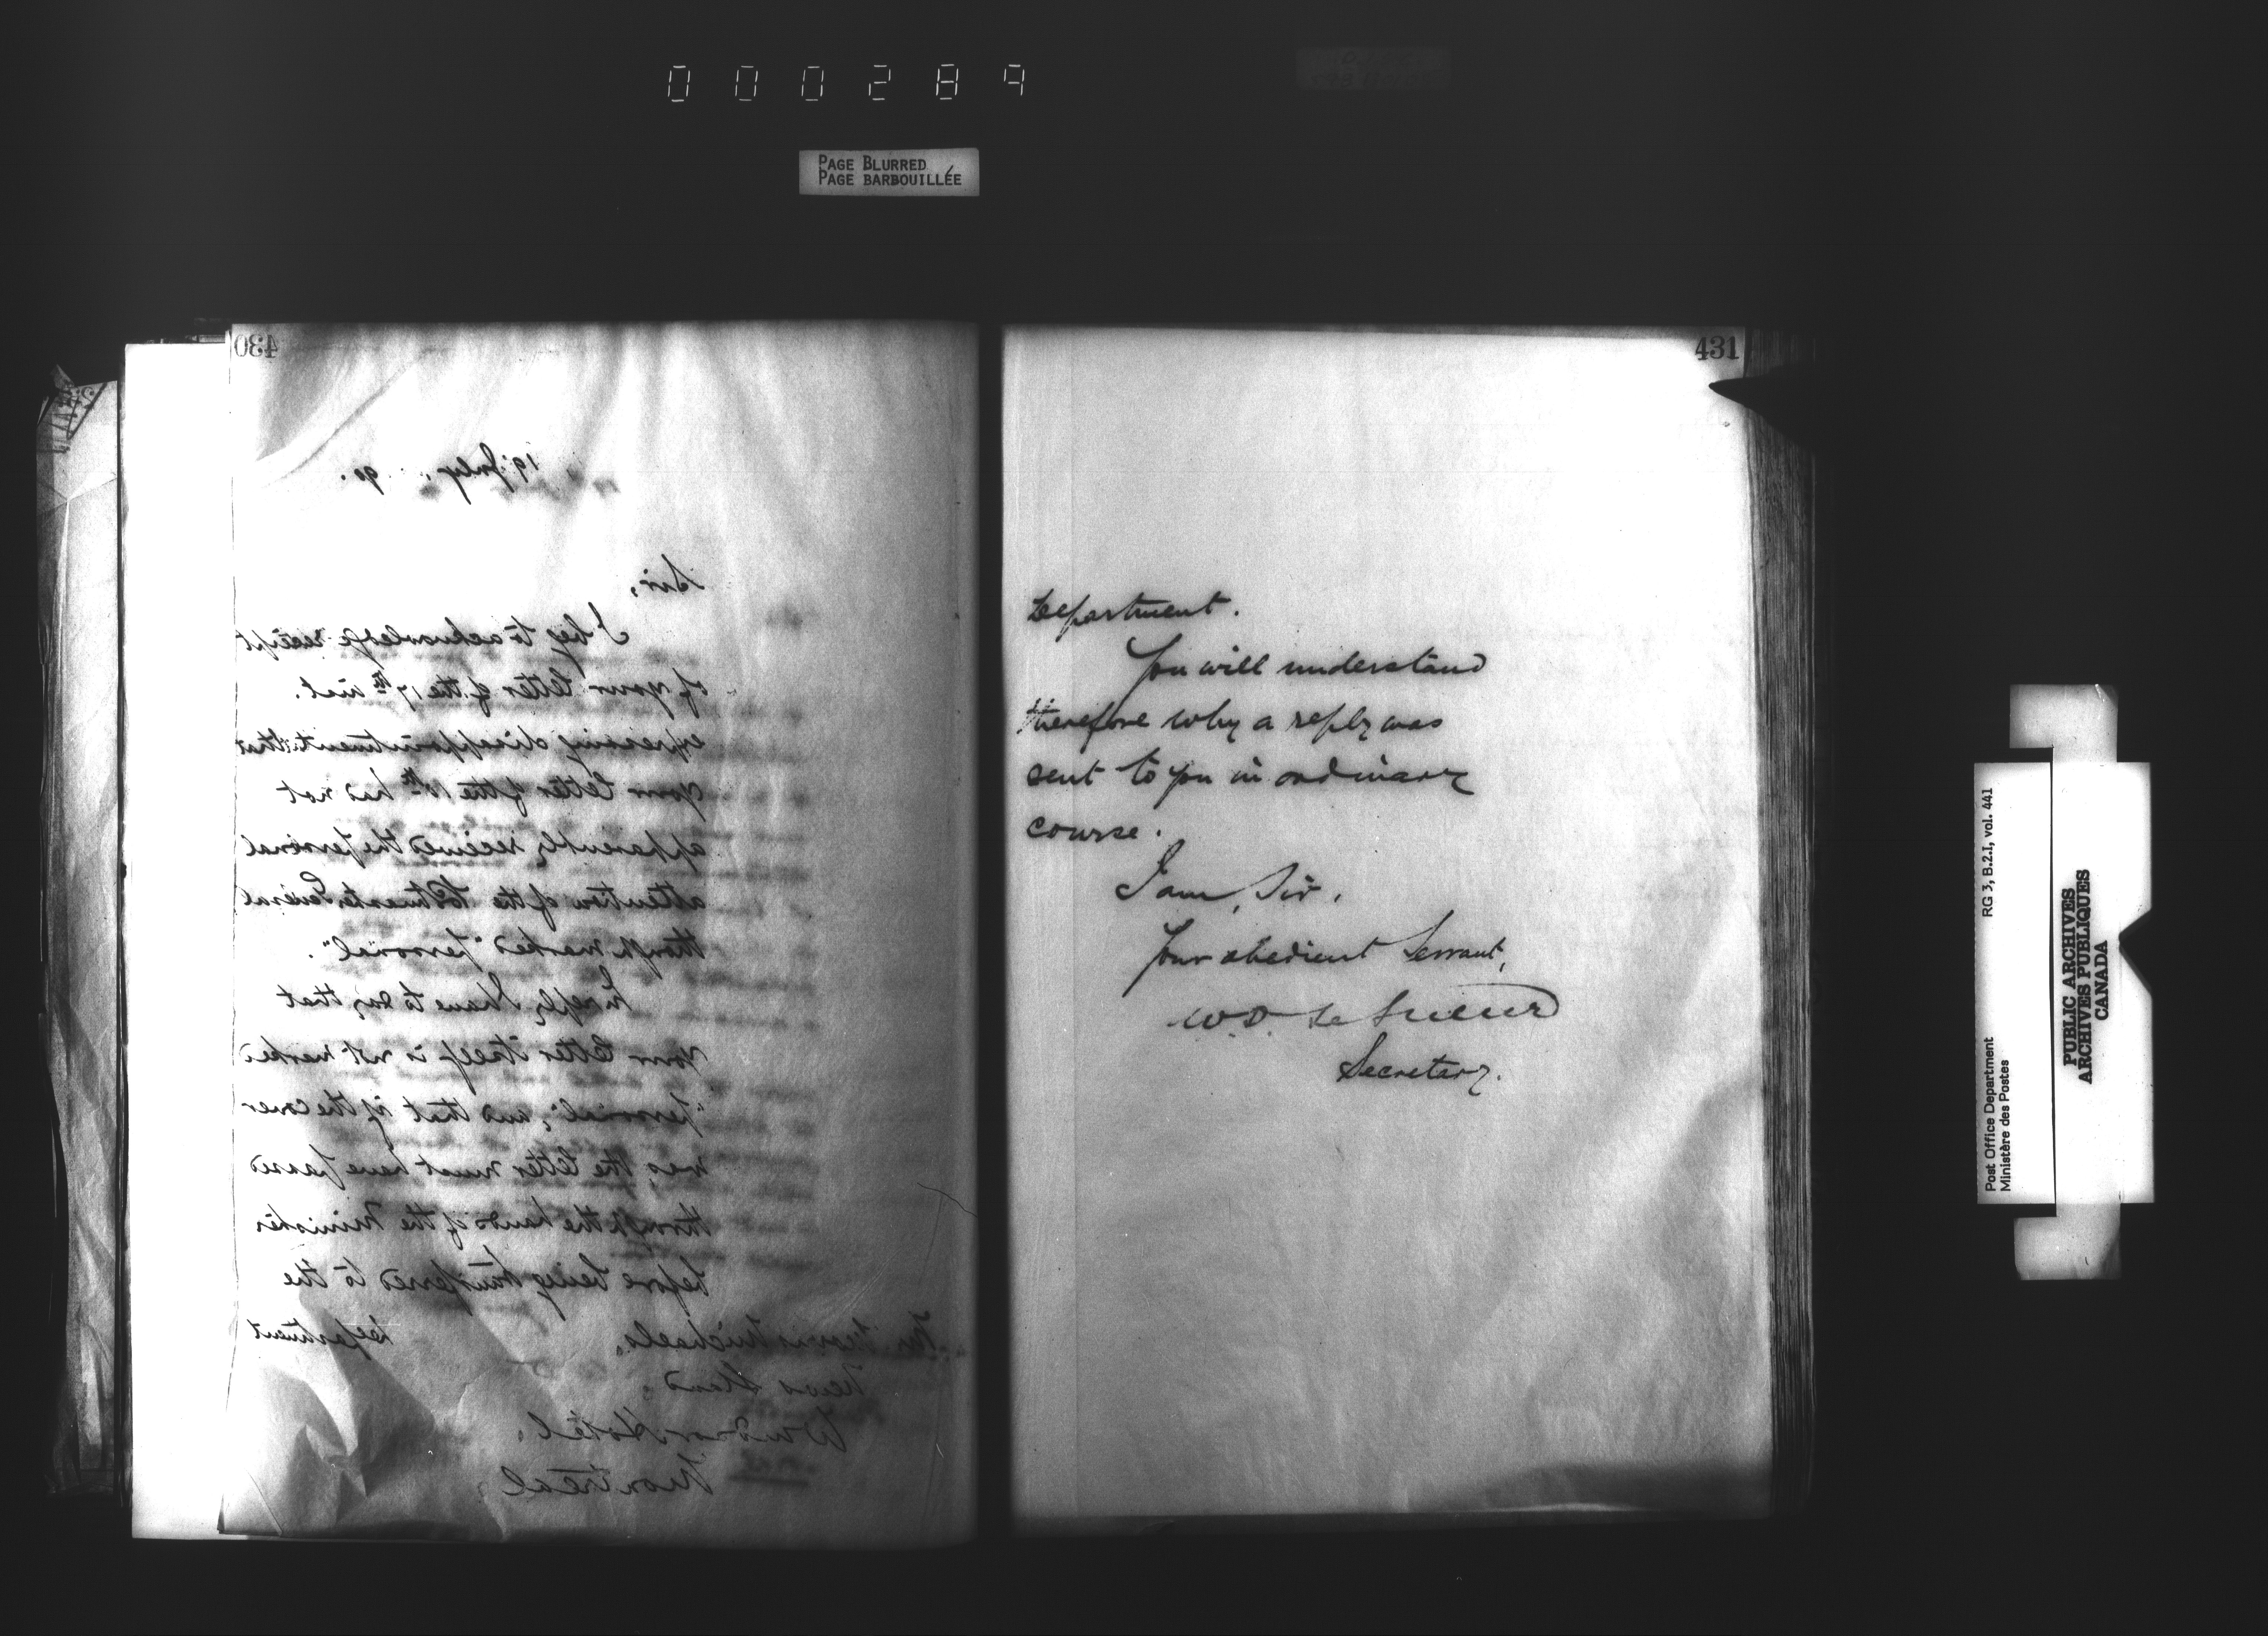 000289
PAGE BLURRED
PAGE BARBOUILLÉE
430
19 July, 90.
Sir,
I beg to acknowledge receipt
of your letter of the 17th inst.
expressing disappointment that
your letter of the had not
apparently received the personal
attention of the Postmaster General
though marked "personal".
In reply I have to say that
your letter itself is not marked
"personal", and that if the cover
was, the letter must have passed
through the hands of the Minister
before being transferred to the
Department
Michaels,
News Stand,
Windsor Hotel,
Montreal
431
Department.
You will understand
therefore why a reply was
sent to you in ordinary
course.
I am, Sir,
Your obedient Servant,
W.D. Le Sueur
Secretary.
Post Office Department
Ministère des Postes
RG 3, B.2.I, vol. 441
PUBLIC ARCHIVES
ARCHIVES PUBLIQUES
CANADA